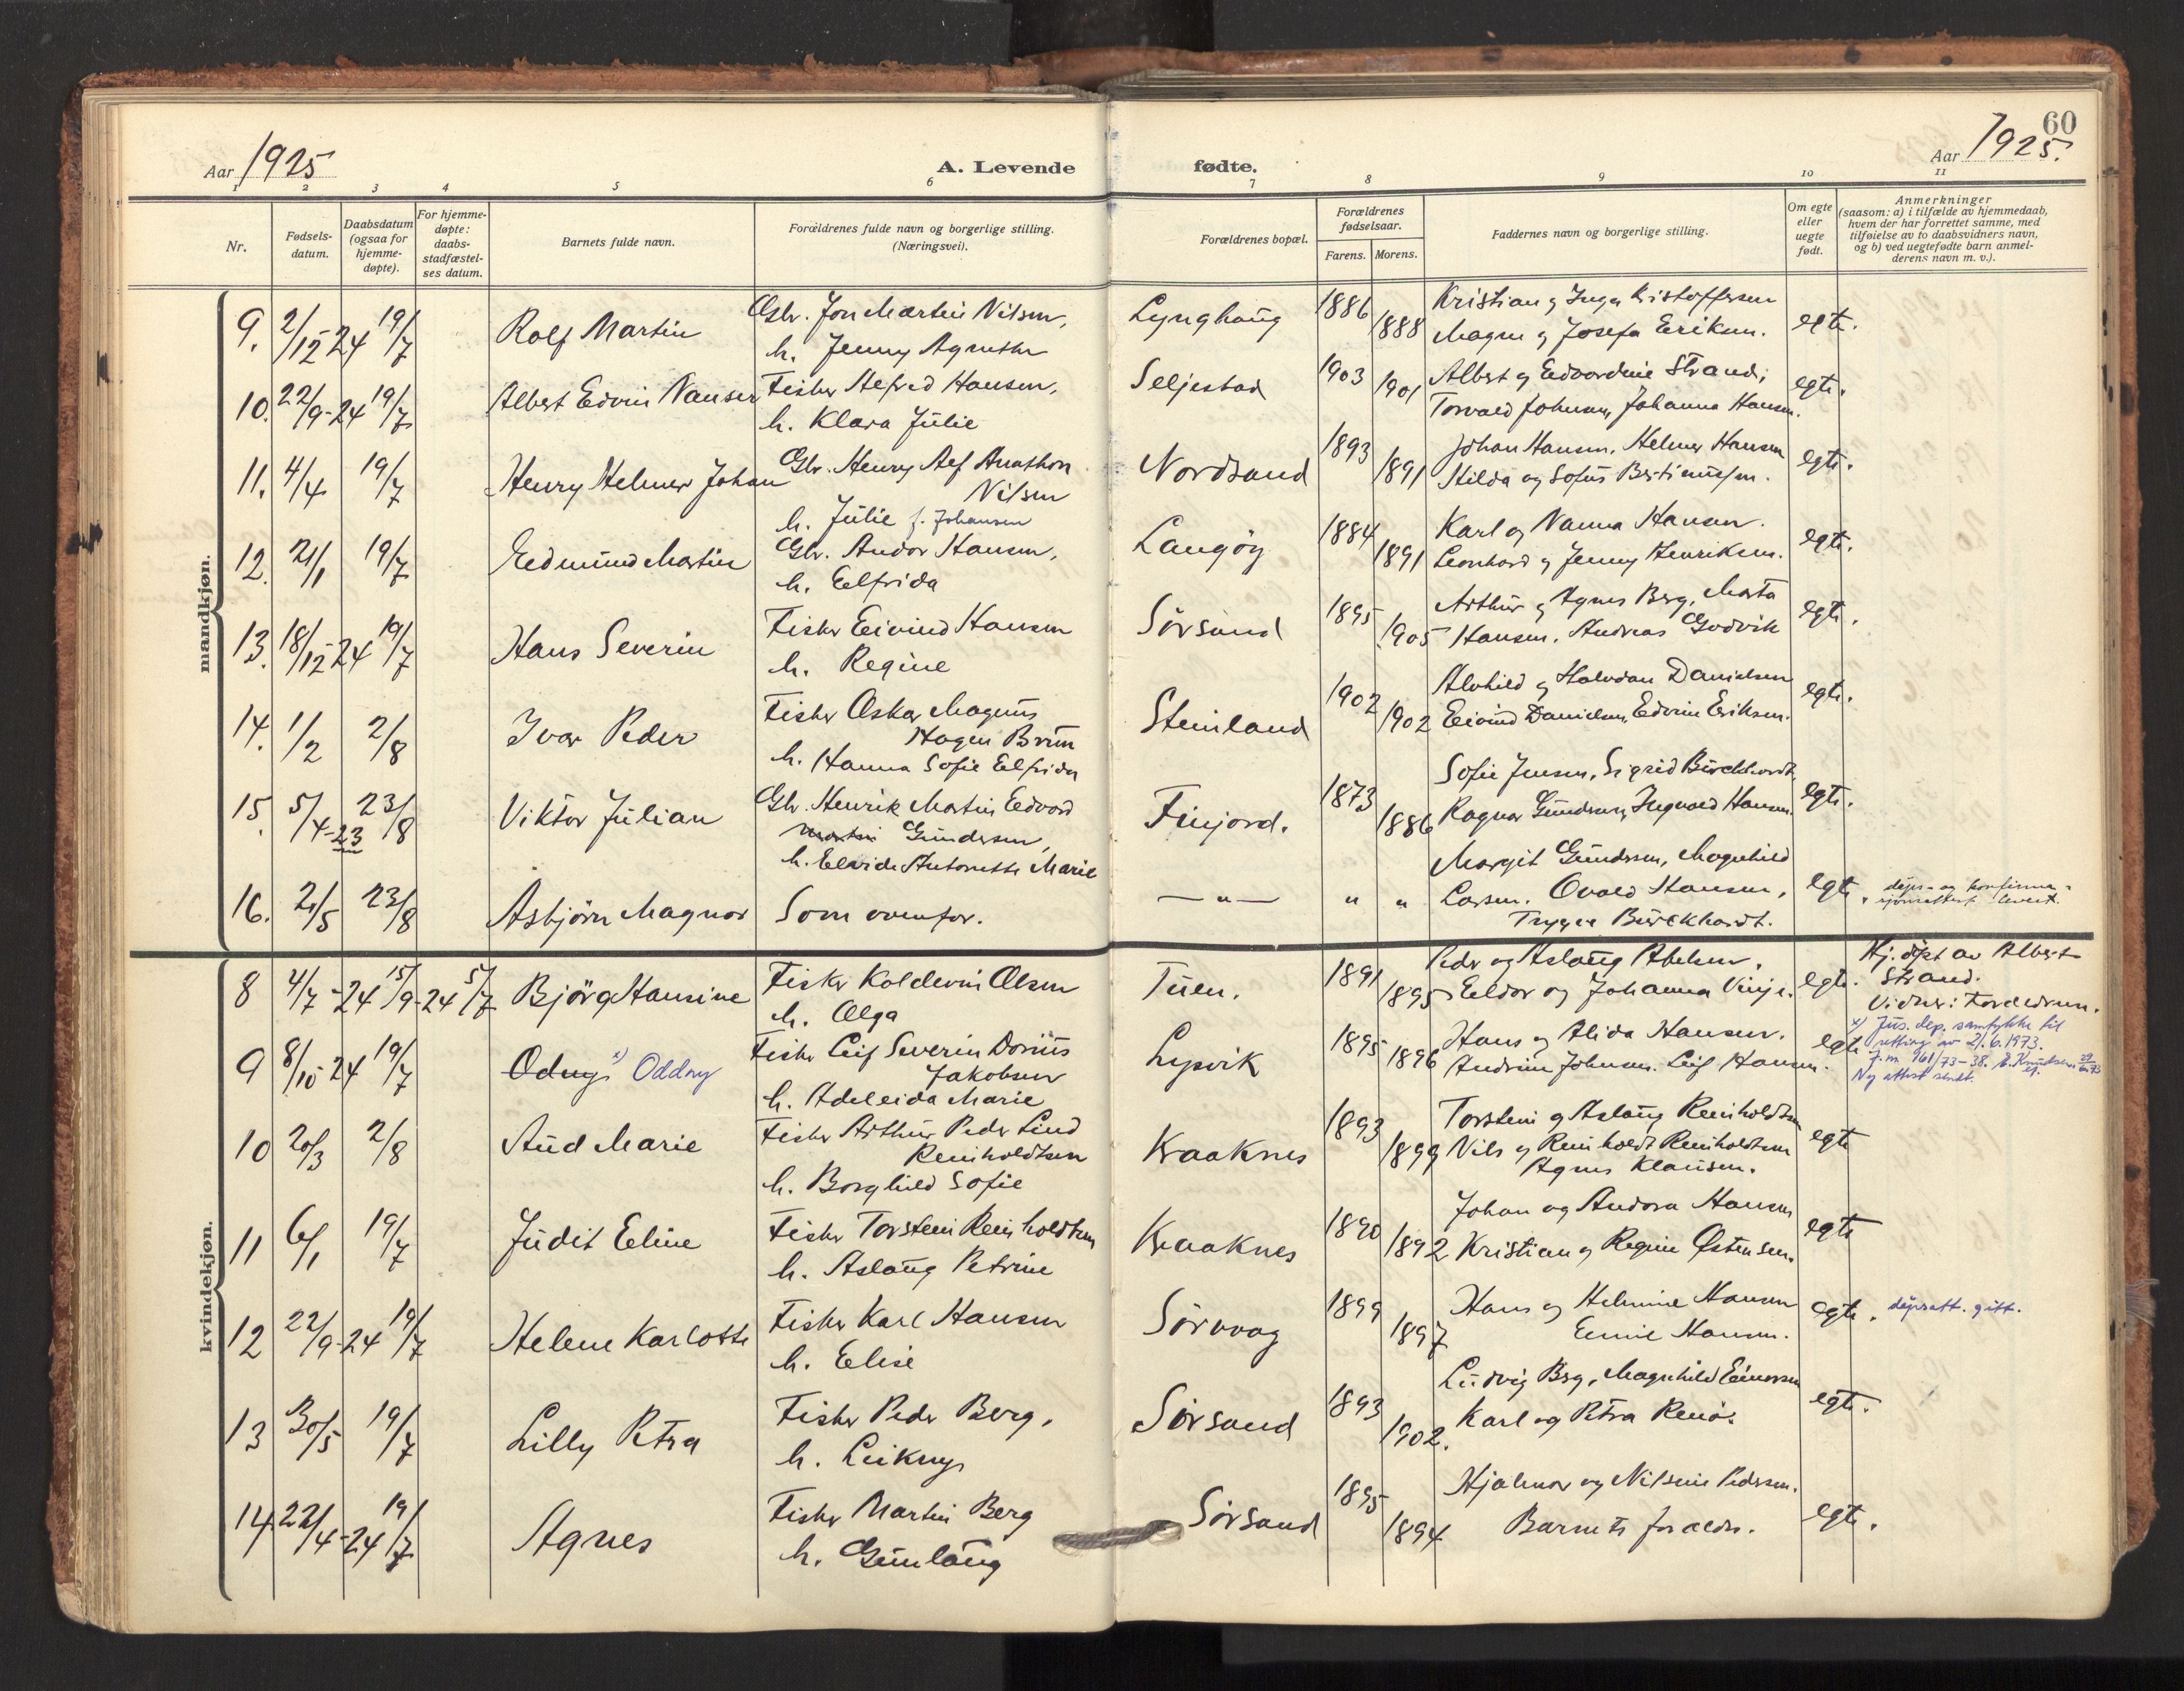 60
Aar 1925
A. Levende
fødte.
Aar 1925.
1 2 3 4 5 6 7 8 9 10 11
Nr.
Fødsels-
datum.
Daabsdatum
(ogsaa for
hjemme-
døpte).
For hjemme-
døpte:
daabs-
stadfæstel-
ses datum.
Barnets fulde navn.
Forældrenes fulde navn og borgerlige stilling.
(Næringsvei).
Forældrenes bopæl.
Forældrenes
fødselsaar.
Farens. Morens.
Faddernes navn og borgerlige stilling.
Om egte
eller
uegte
født.
Anmerkninger
(saasom: a) i tilfælde av hjemmedaab,
hvem der har forrettet samme, med
tilføielse av to daabsvidners navn,
og b) ved uegtefødte barn anmel-
derens navn m. v.).
mandkjøn.
9. 2/12-24 19/7 Rolf Martin Gbr. Jon Martin Nilsen, Lynghaug 1886 Kristian og Inga Kristoffersen egte.
h. Jenny Agnethe 1888 Magne og Josefa Eriksen.
10. 22/9-24 19/7 Albert Edvin Nansen Fisker Alfred Hansen, Seljestad 1903 Albert og Edvardine Strand; egte.
h. Klara Julie 1901 Torvald Johnsen, Johanna Hansen.
11. 4/4 19/7 Henry Helmer Johan Gbr. Henry Alf Anathon Nordsand 1893 Johan Hansen. Helmer Hansen egte.
Nilsen 1891 Hilda og Sofus Bertinussen.
h. Julie f. Johansen
12. 21/1 19/7 Edmund Martin Gbr. Andor Hansen, Langøy 1884 Karl og Nanna Hansen. egte.
h. Elfrida 1891 Leonhard og Jenny Henriksen.
13. 18/12-24 19/7 Hans Severin Fisker Eivind Hansen Sørsand 1895 Arthur og Agnes Berg, Marta egte.
h. Regine 1905 Hansen. Andreas Godvik
14. 1/2 2/8 Ivar Peder Fisker Oskar Magnus Steinland 1902 Alvhild og Halvdan Danielsen egte.
Hagen Brun 1902 Eivind Danielsen, Edvin Eriksen.
h. Hanna Sofie Elfrida
15. 5/4-23 23/8 Viktor Julian Gbr. Henrik Martin Edvard Finjord. 1873 Sofie Jensen, Sigrid Burchhardt, egte.
Martin Gundersen, 1886 Ragnar Gundersen, Ingvald Hansen.
h. Elvide Antonette Marie
16. 21/5 23/8 Asbjørn Magnor Som ovenfor. — „ — „ „ Margit Gundersen, Magnhild egte.
Larsen. Ovald Hansen, døps- og konfirma-
Trygve Burckhardt. sjonsattest levert.
kvindekjøn.
8 4/7-24 15/9-24 5/7 Bjørg Hansine Fisker Kolderin Olsen Tuen. 1891 Peder og Aslaug Abelsen, egte. Hj. døpt av Albert
h. Olga 1895 Eldor og Johanna Vinje. Strand.
Vidner:
9 8/10-24 19/7 Odny x) Oddny Fisker Leif Severin Dorius Lysvik 1895 Hans og Alida Hansen. egte x) Jus. dep. samtykke til
Jakobsen 1896 Andrine Johnsen. Leif Hansen. retting av 21.6.1973.
h. Adeleida Marie J.nr. 961/73-38. E. Knudsen
Ny attest sendt.
10 20/3 2/8 Aud Marie Fisker Arthur Peder Lind Kraaknes 1893 Torstein og Aslaug Reinholdtsen egte
Reinholdtsen 1899 Nils og Reinholdt Reinholdtsen
h. Borghild Sofie Agnes Klausen.
11 6/1 19/7 Judit Eline Fisker Torstein Reinholdtsen Kraaknes 1890 Johan og Andora Hansen egte
h. Aslaug Petrine 1892 Kristian og Regine Østensen.
12 22/9-24 19/7 Helene Karlotte Fisker Karl Hansen Sørvaag 1899 Hans og Helmine Hansen egte. døpsatt. gitt.
h. Elise 1897 Emil Hansen.
13 30/5 19/7 Lilly Petra Fisker Peder Berg, Sørsand 1893 Ludvig Berg, Magnhild Einarsen egte.
h. Leikny 1902. Karl og Petra Renø.
14 22/4-24 19/7 Agnes Fisker Martin Berg Sørsand 1895 Hjalmar og Nilsine Pedersen. egte.
h. Gunlaug 1894 Barnets foræld.